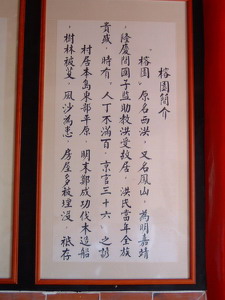 榕園簡介
榕園。原名西洪，又名鳳山，為明嘉靖
隆慶間國子監助教洪受故居。洪氏當年全族
貴盛，時有，人丁不滿百，京官三十六，之諺
村居本島東部平原，明末鄭成功伐木造船
樹林被芟，風沙為患，房屋多被埋沒，祇存